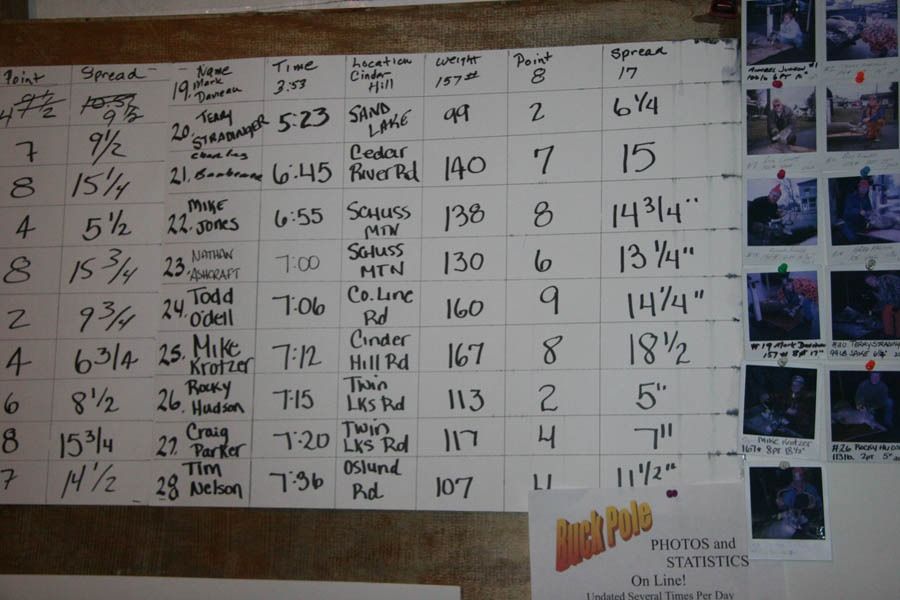 Point Spread Name Time Location Weight Point Spread
19. Mark 3:53 Cinder Hill 157# 8 17
4 9 1/2
20. Terry Stradinger 5:23 Sand Lake 99 2 6 1/4
7 9 1/2
21. Charles 6:45 Cedar River Rd 140 7 15
8 15 1/4
22. Mike Jones 6:55 Schuss Mtn 138 8 14 3/4"
4 5 1/2
23. Nathan Ashcraft 7:00 Schuss Mtn 130 6 13 1/4"
8 15 3/4
24. Todd O'dell 7:06 Co. Line Rd 160 9 14 1/4"
2 9 3/4
25. Mike Krotzer 7:12 Cinder Hill Rd 167 8 18 1/2
4 6 3/4
26. Rocky Hudson 7:15 Twin Lks Rd 113 2 5"
6 8 1/2
27. Craig Parker 7:20 Twin Lks Rd 117 4 7"
8 15 3/4
28 Tim Nelson 7:36 Oslund Rd 107 4 11 1/2"
7 14 1/2
Buck Pole
PHOTOS and
STATISTICS
On Line!
Updated Several Times Per Day
#19 Mark
157# 8pt 17"
#20 Terry
99 lb
Mike Krotzer
167# 8pt 18 1/2"
#26 Rocky
113 lb. 2pt 5"